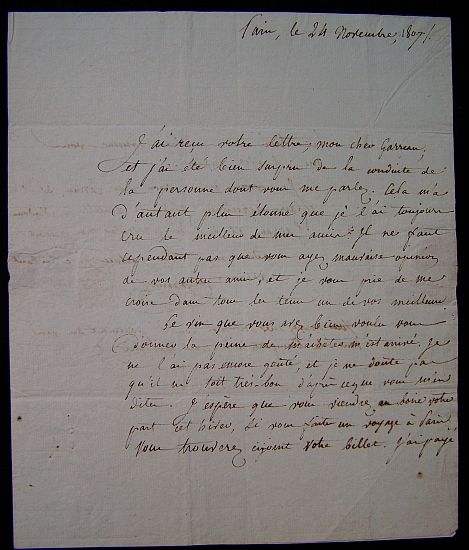 Paris, le 24 Novembre, 1807
J'ai reçu votre lettre, mon cher Garreau,
et j'ai été bien surpris de la conduite de
la personne dont vous me parlez. Cela m'a
d'autant plus étonné que je l'ai toujours
cru le meilleur de mes amis. Il ne faut
cependant pas que vous ayez mauvaise opinion
de vos autres amis, et je vous prie de me
croire dans tous les tems un de vos meilleurs
Le vin que vous avez bien voulu vous
donner la peine de m'acheter m'est arrivé. Je
ne l'ai pas encore goûté, et je ne doute pas
qu'il ne soit très-bon d'après ce que vous m'en
dites. J'espère que vous viendrez en boire votre
part cet hiver, si vous faites un voyage à Paris
Vous trouverez cijoint votre billet. J'ai payé